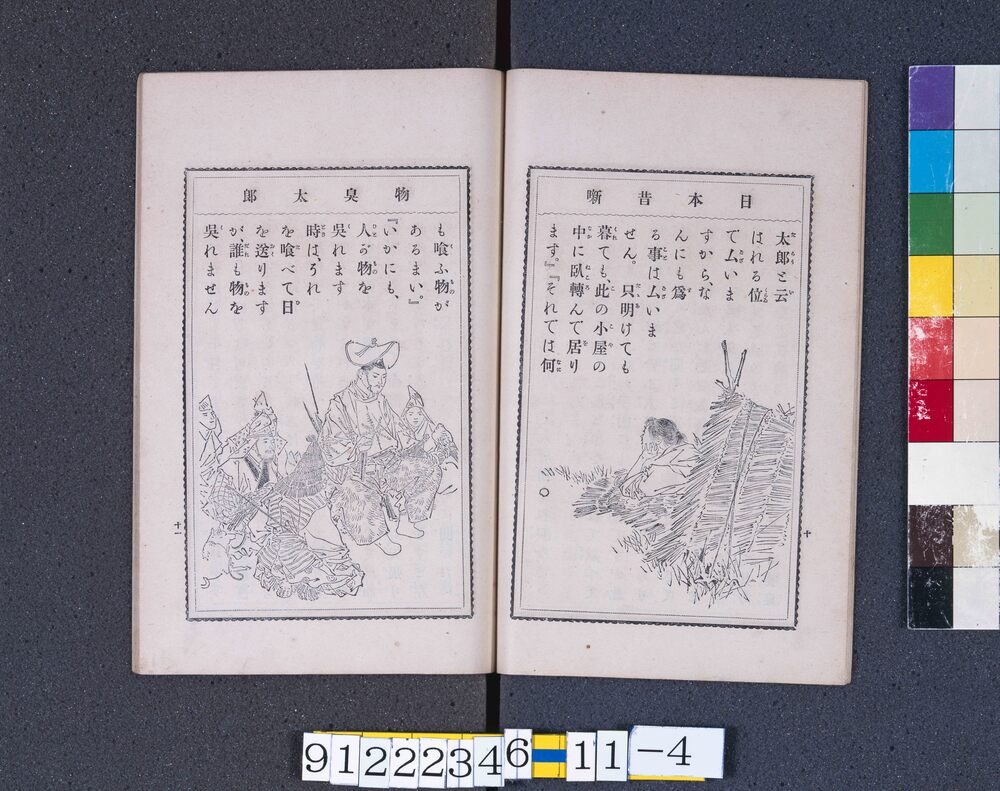 日本昔噺
太郎と云
はれる位
てムいま
すから、な
んにも爲
る事はムいま
せん。只明けても
暮ても此の小屋の
中に臥轉んて居り
ます。』『それては何
十
物臭太郎
も喰ふ物が
あるまい。』
『いかにも、
人が物を
吳れます
時は、うれ
を喰べて日。
を送ります
が、誰も物を
吳れません
十一
9122234611-4